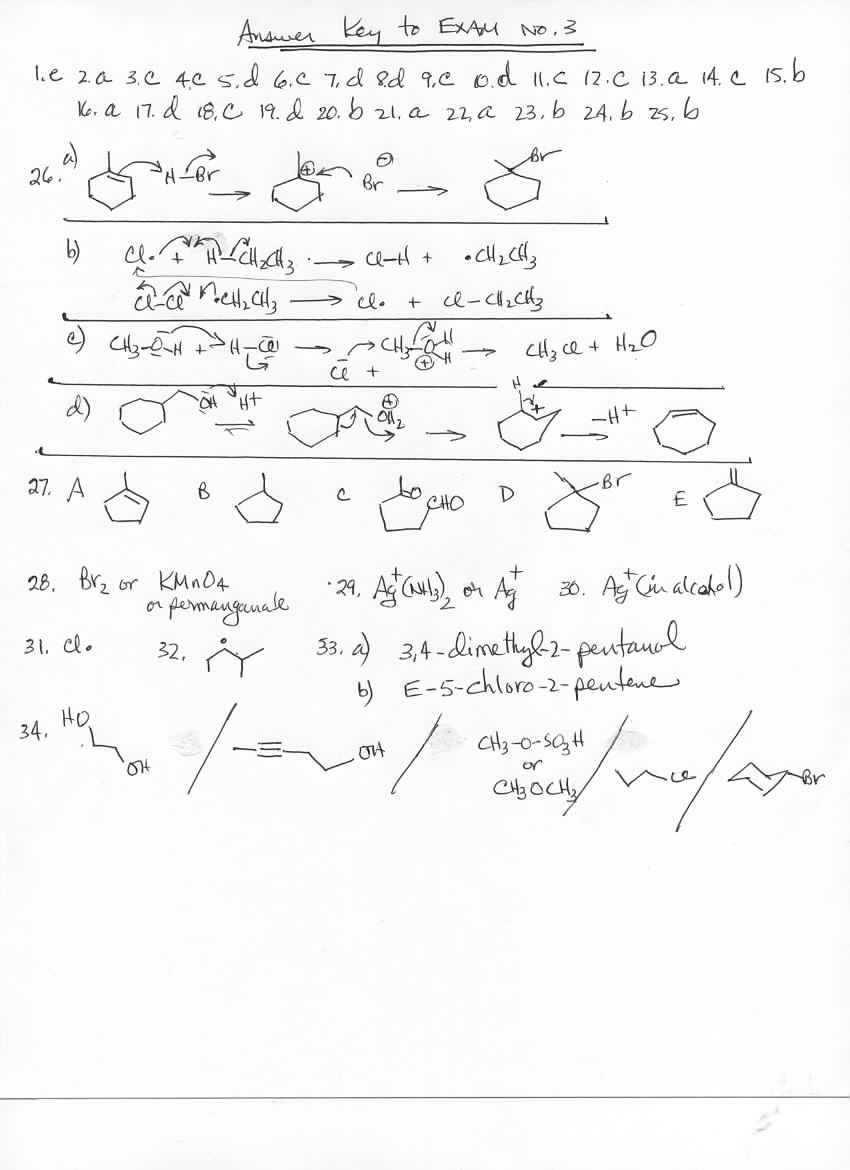 Answer Key to EXAM NO. 3
1.e 2.a 3.c 4.c 5.d 6.c 7.d 8.d 9.c 10.d 11.c 12.c 13.a 14.c 15.b
16.a 17.d 18.c 19.d 20.b 21.a 22.a 23.b 24.b 25.b
26. a) H-Br → ⊕ Br ⊖ → Br
b) Cl· + H-CH2CH3 · → Cl-H + ·CH2CH3
Cl-Cl ·CH2CH3 → Cl· + Cl-CH2CH3
c) CH3-O-H + H-Cl → Cl + CH3-O-H H ⊕ → CH3Cl + H2O
d) OH H+ ⇌ ⊕ OH2 → H + -H+ →
27. A B C O CHO D Br E
28. Br2 or KMnO4
or permanganate
29. Ag+(NH3)2 or Ag+ 30. Ag+ (in alcohol)
31. Cl· 32. · 33. a) 3,4-dimethyl-2-pentanol
b) E-5-chloro-2-pentene
34. HO OH / ≡ OH / CH3-O-SO3H or CH3OCH3 / Cl / Br